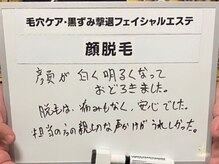 毛穴ケア・黒ずみ撃退フェイシャルエステ
顔脱毛
顔が白く明るくなって
おどろきました。
脱毛は、痛みもなく、安心でした。
担当の方の親しみな声かけがうれしかった。